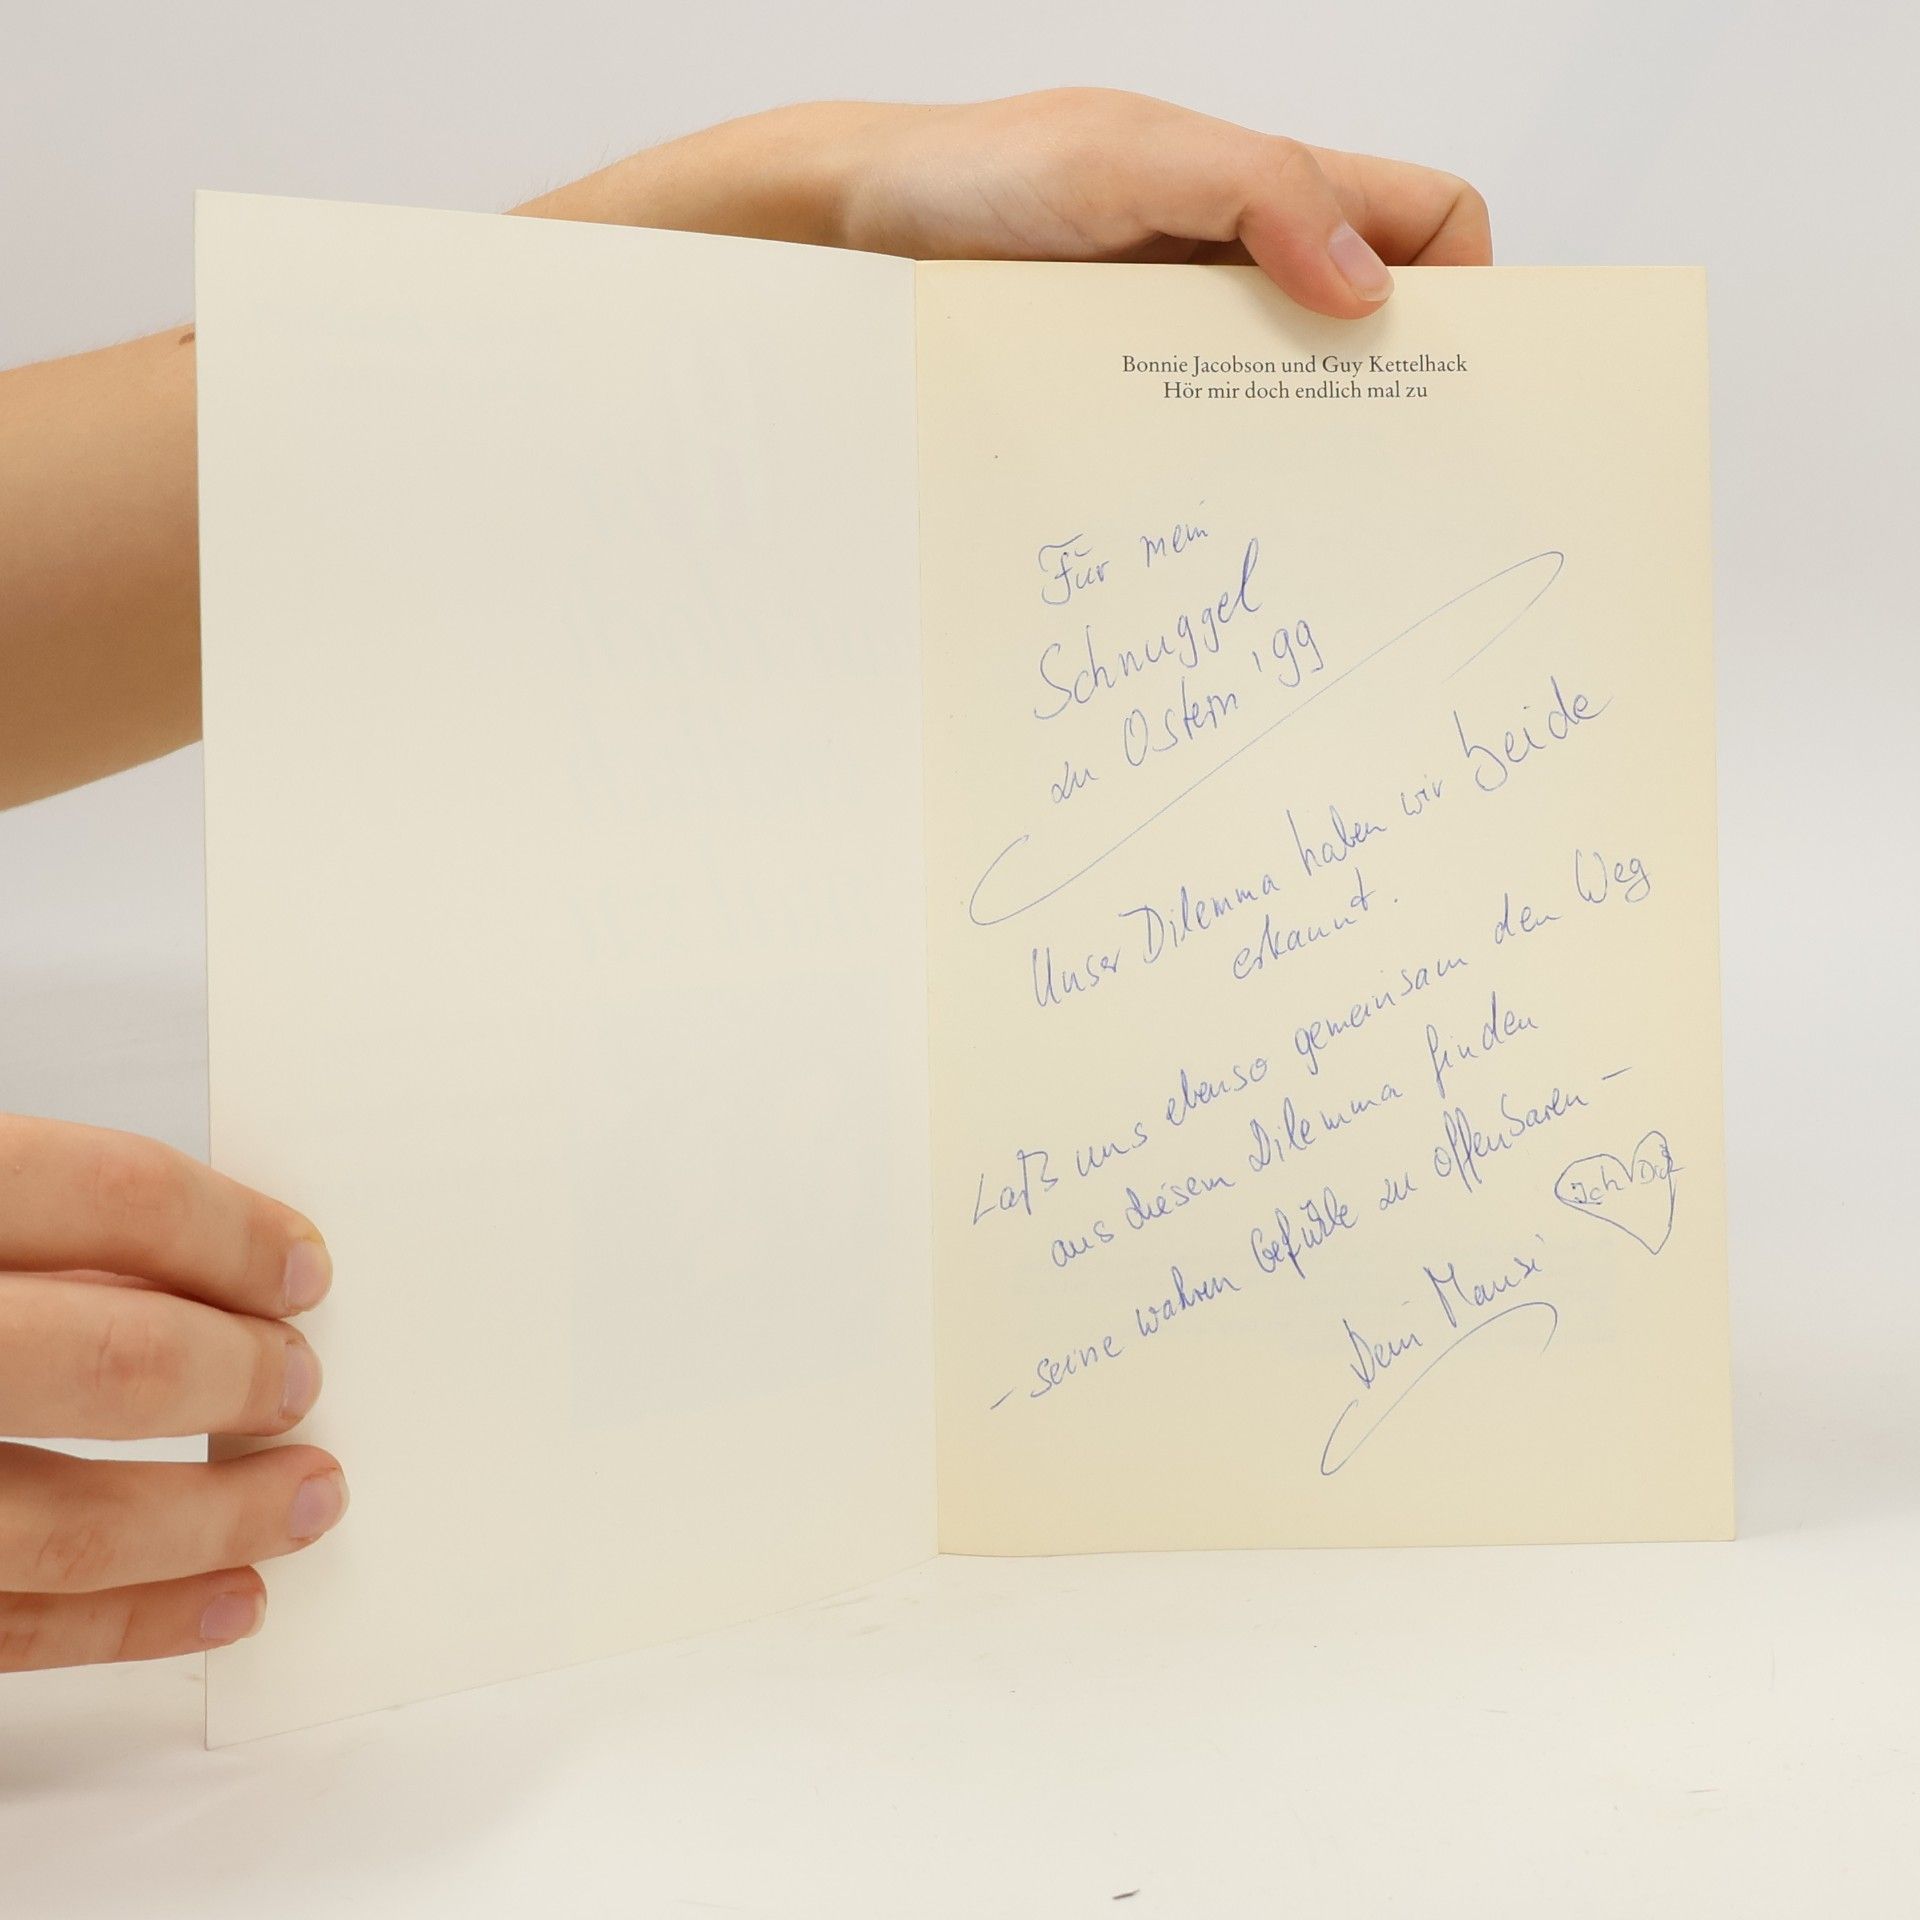 Bonnie Jacobson und Guy Kettelhack
Hör mir doch endlich mal zu
Für mein
Schnuggel
zu Ostern '99
Unser Dilemma haben wir beide
erkannt.
Laß uns ebenso gemeinsam den Weg
aus diesem Dilemma finden
- seine wahren Gefühle zu offenbaren -
Ich Dich
Dein Mausi